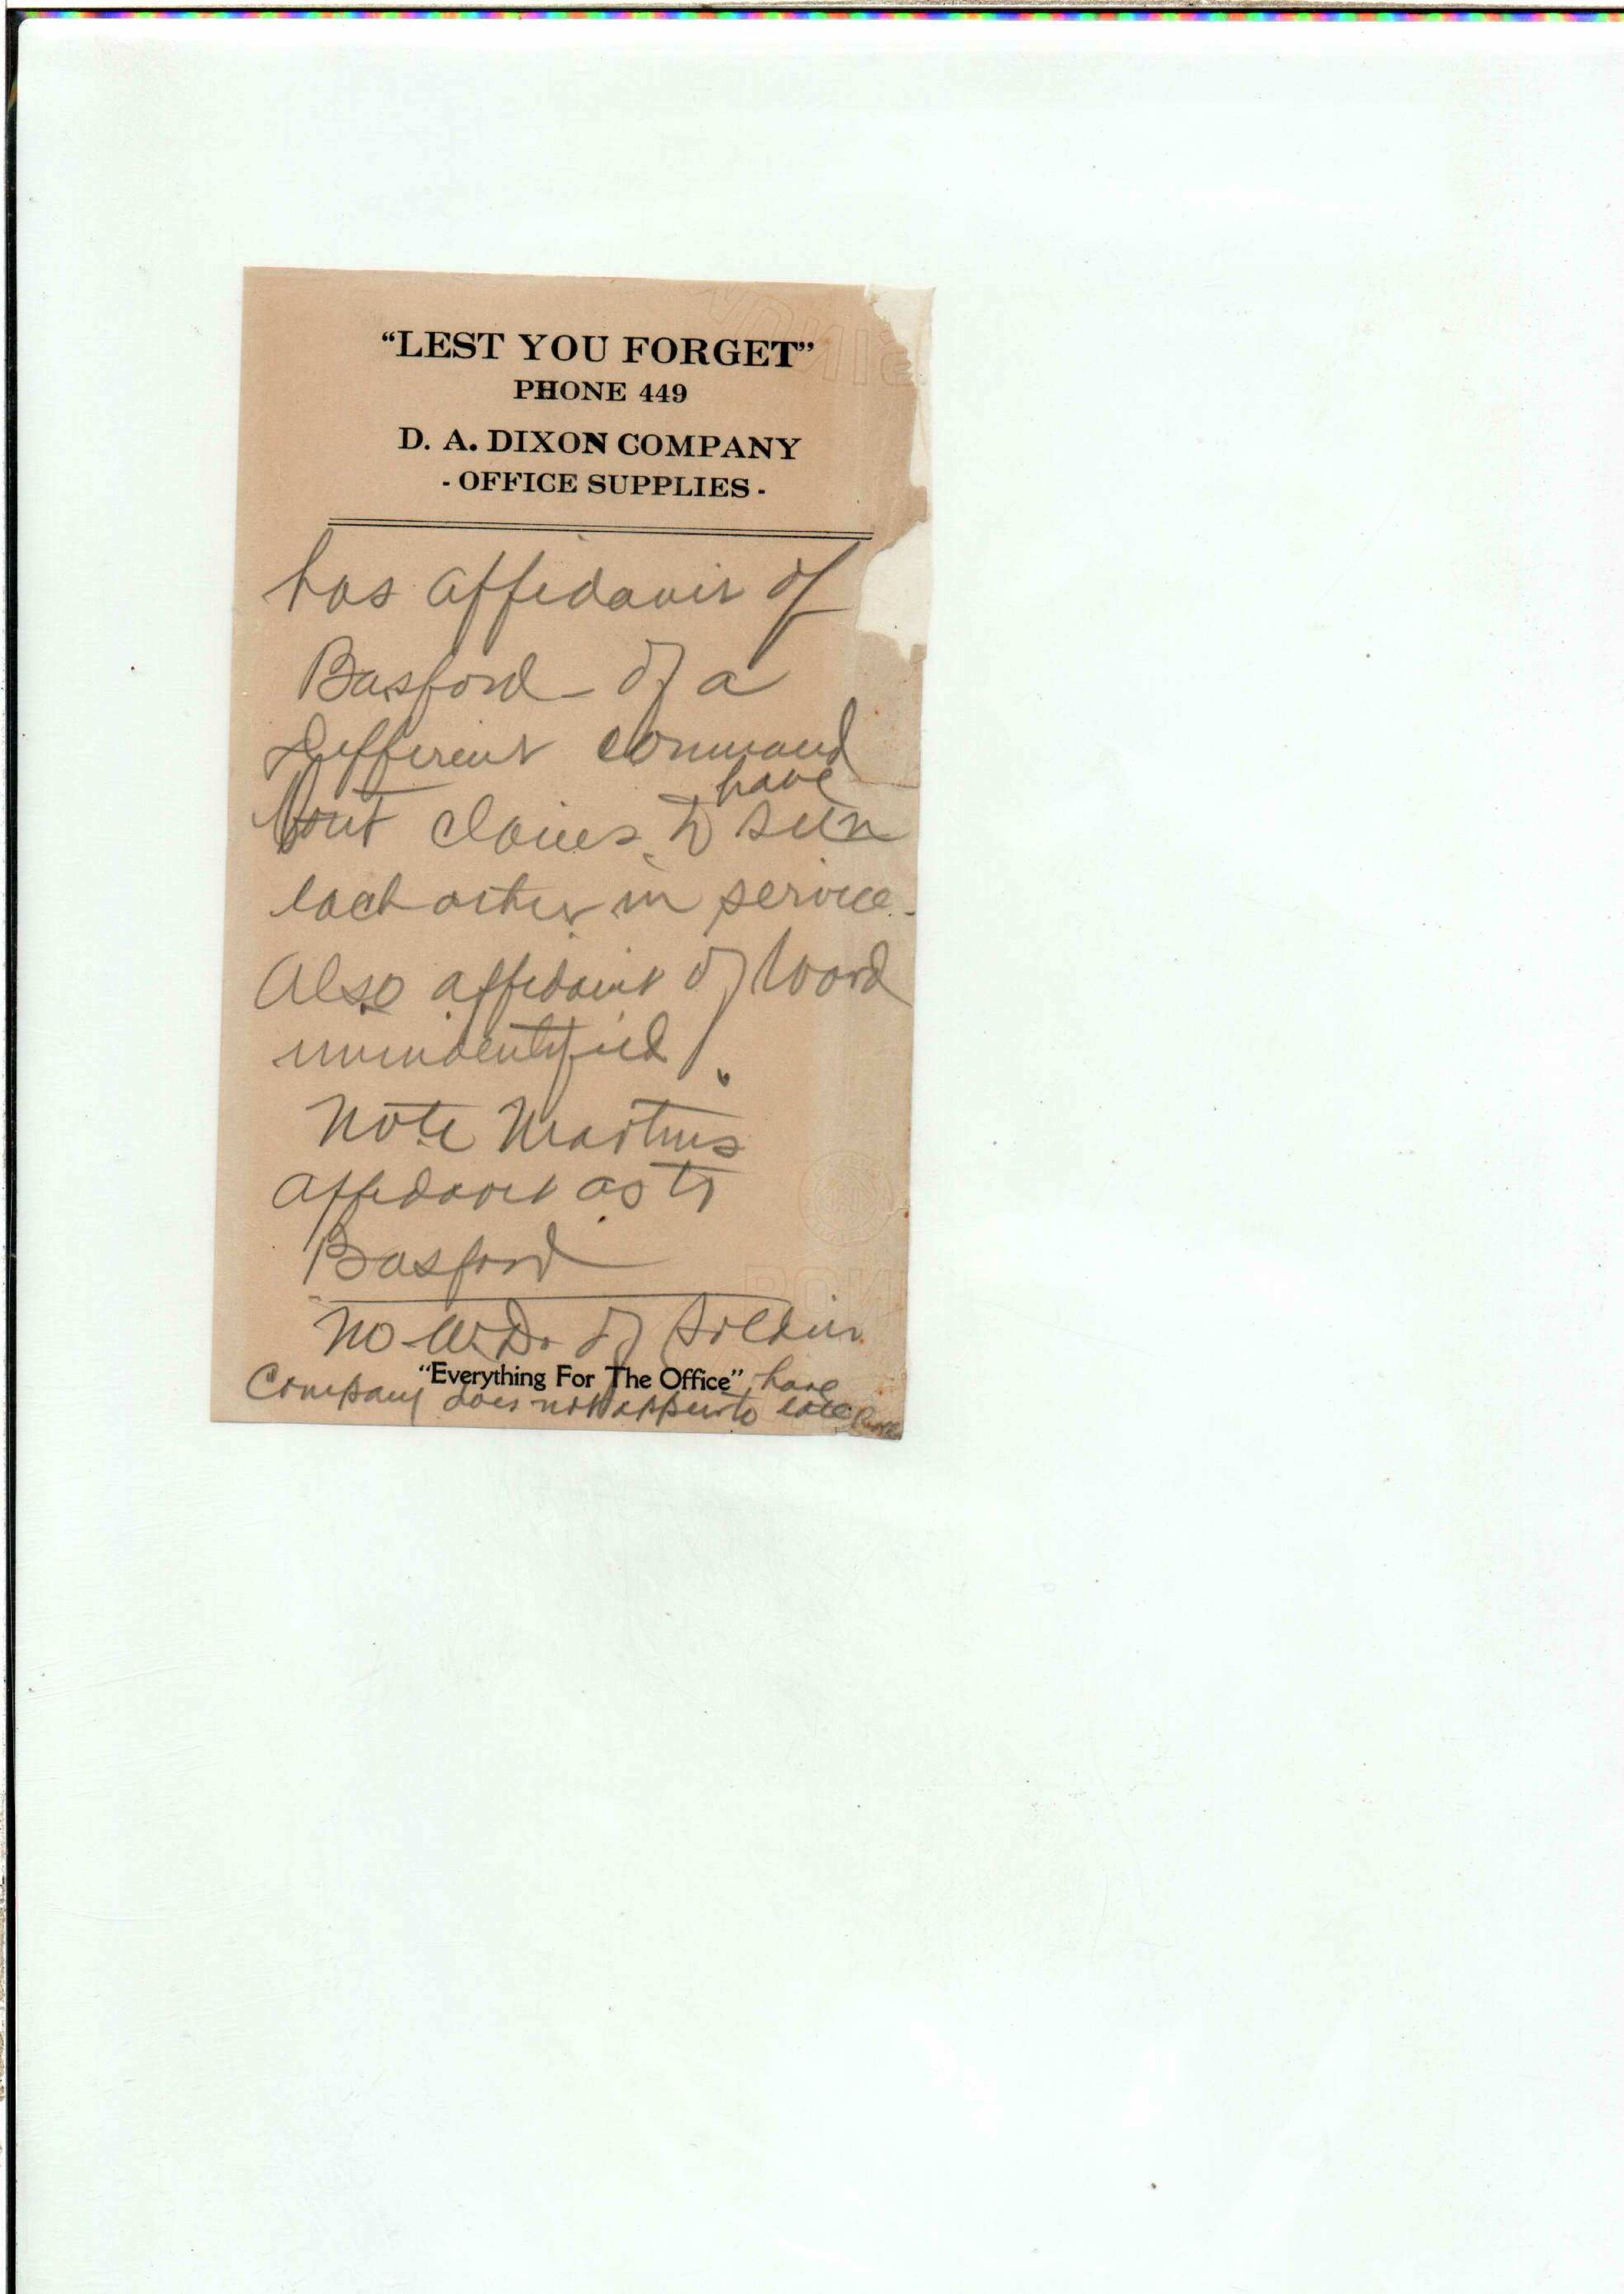 “LEST YOU FORGET”
PHONE 449
D. A. DIXON COMPANY
- OFFICE SUPPLIES -
has affidavit of
Basford - of a
different command
but claims to have seen
each other in service.
Also affidavit of Ward
unindentified.
Note Martins
affidavit as to
Basford
No W.D. of Soldier
“Everything For The Office”
Company does not appear to have